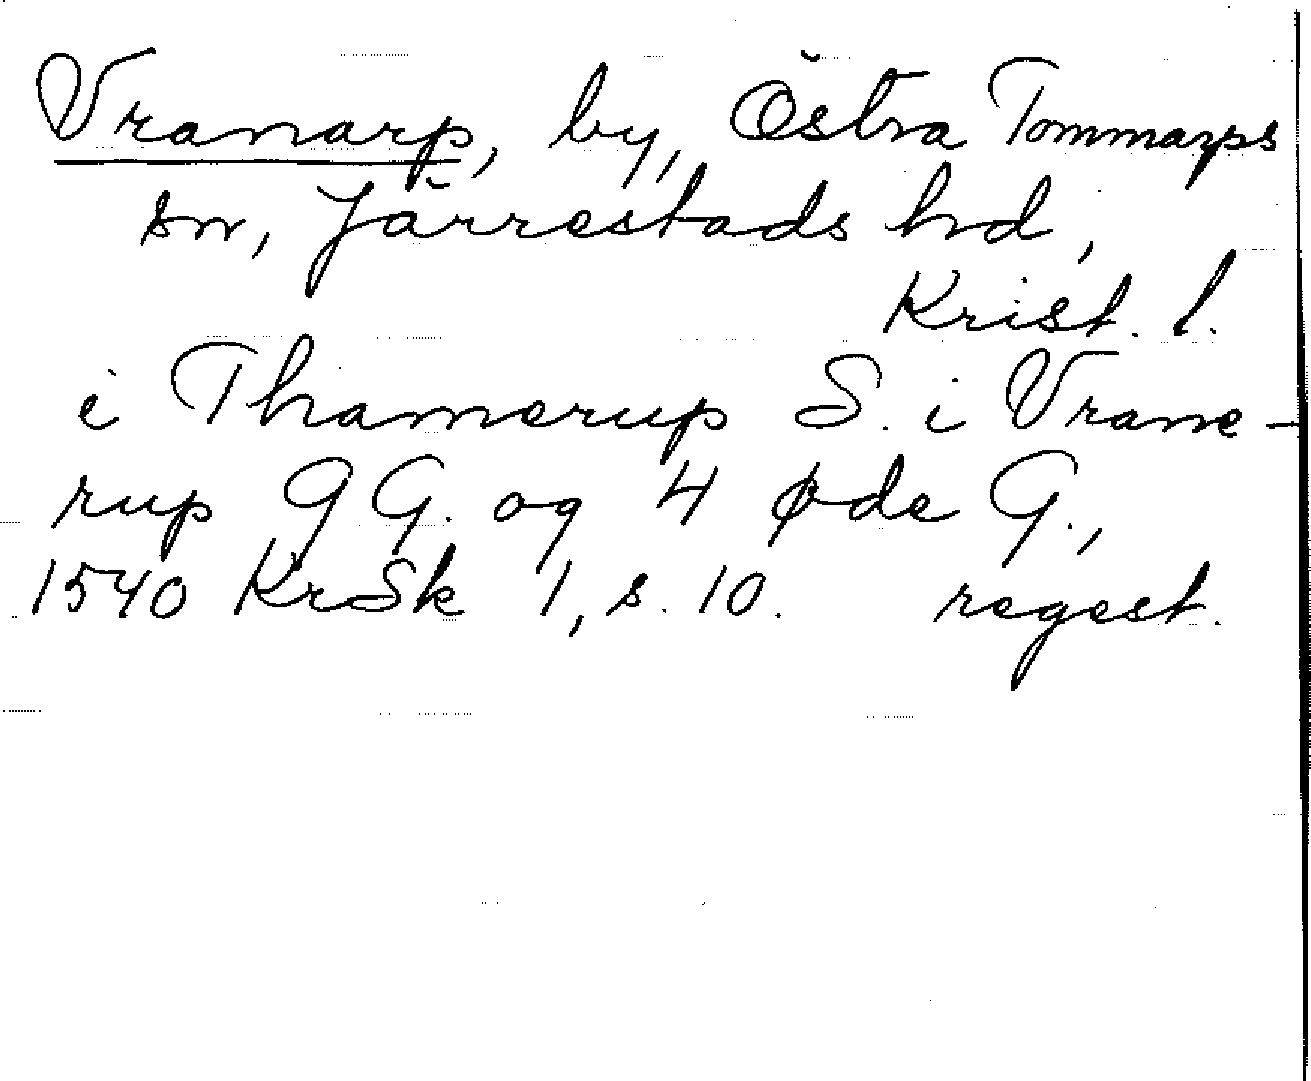 Vranarp, by, Östra Tommarps
sn, Järrestads hd,
Krist. l.
i Thamerup S. i Vrane-
rup 9 G. og 4 øde G.,
1540 KrSk 1, s. 10. regest.